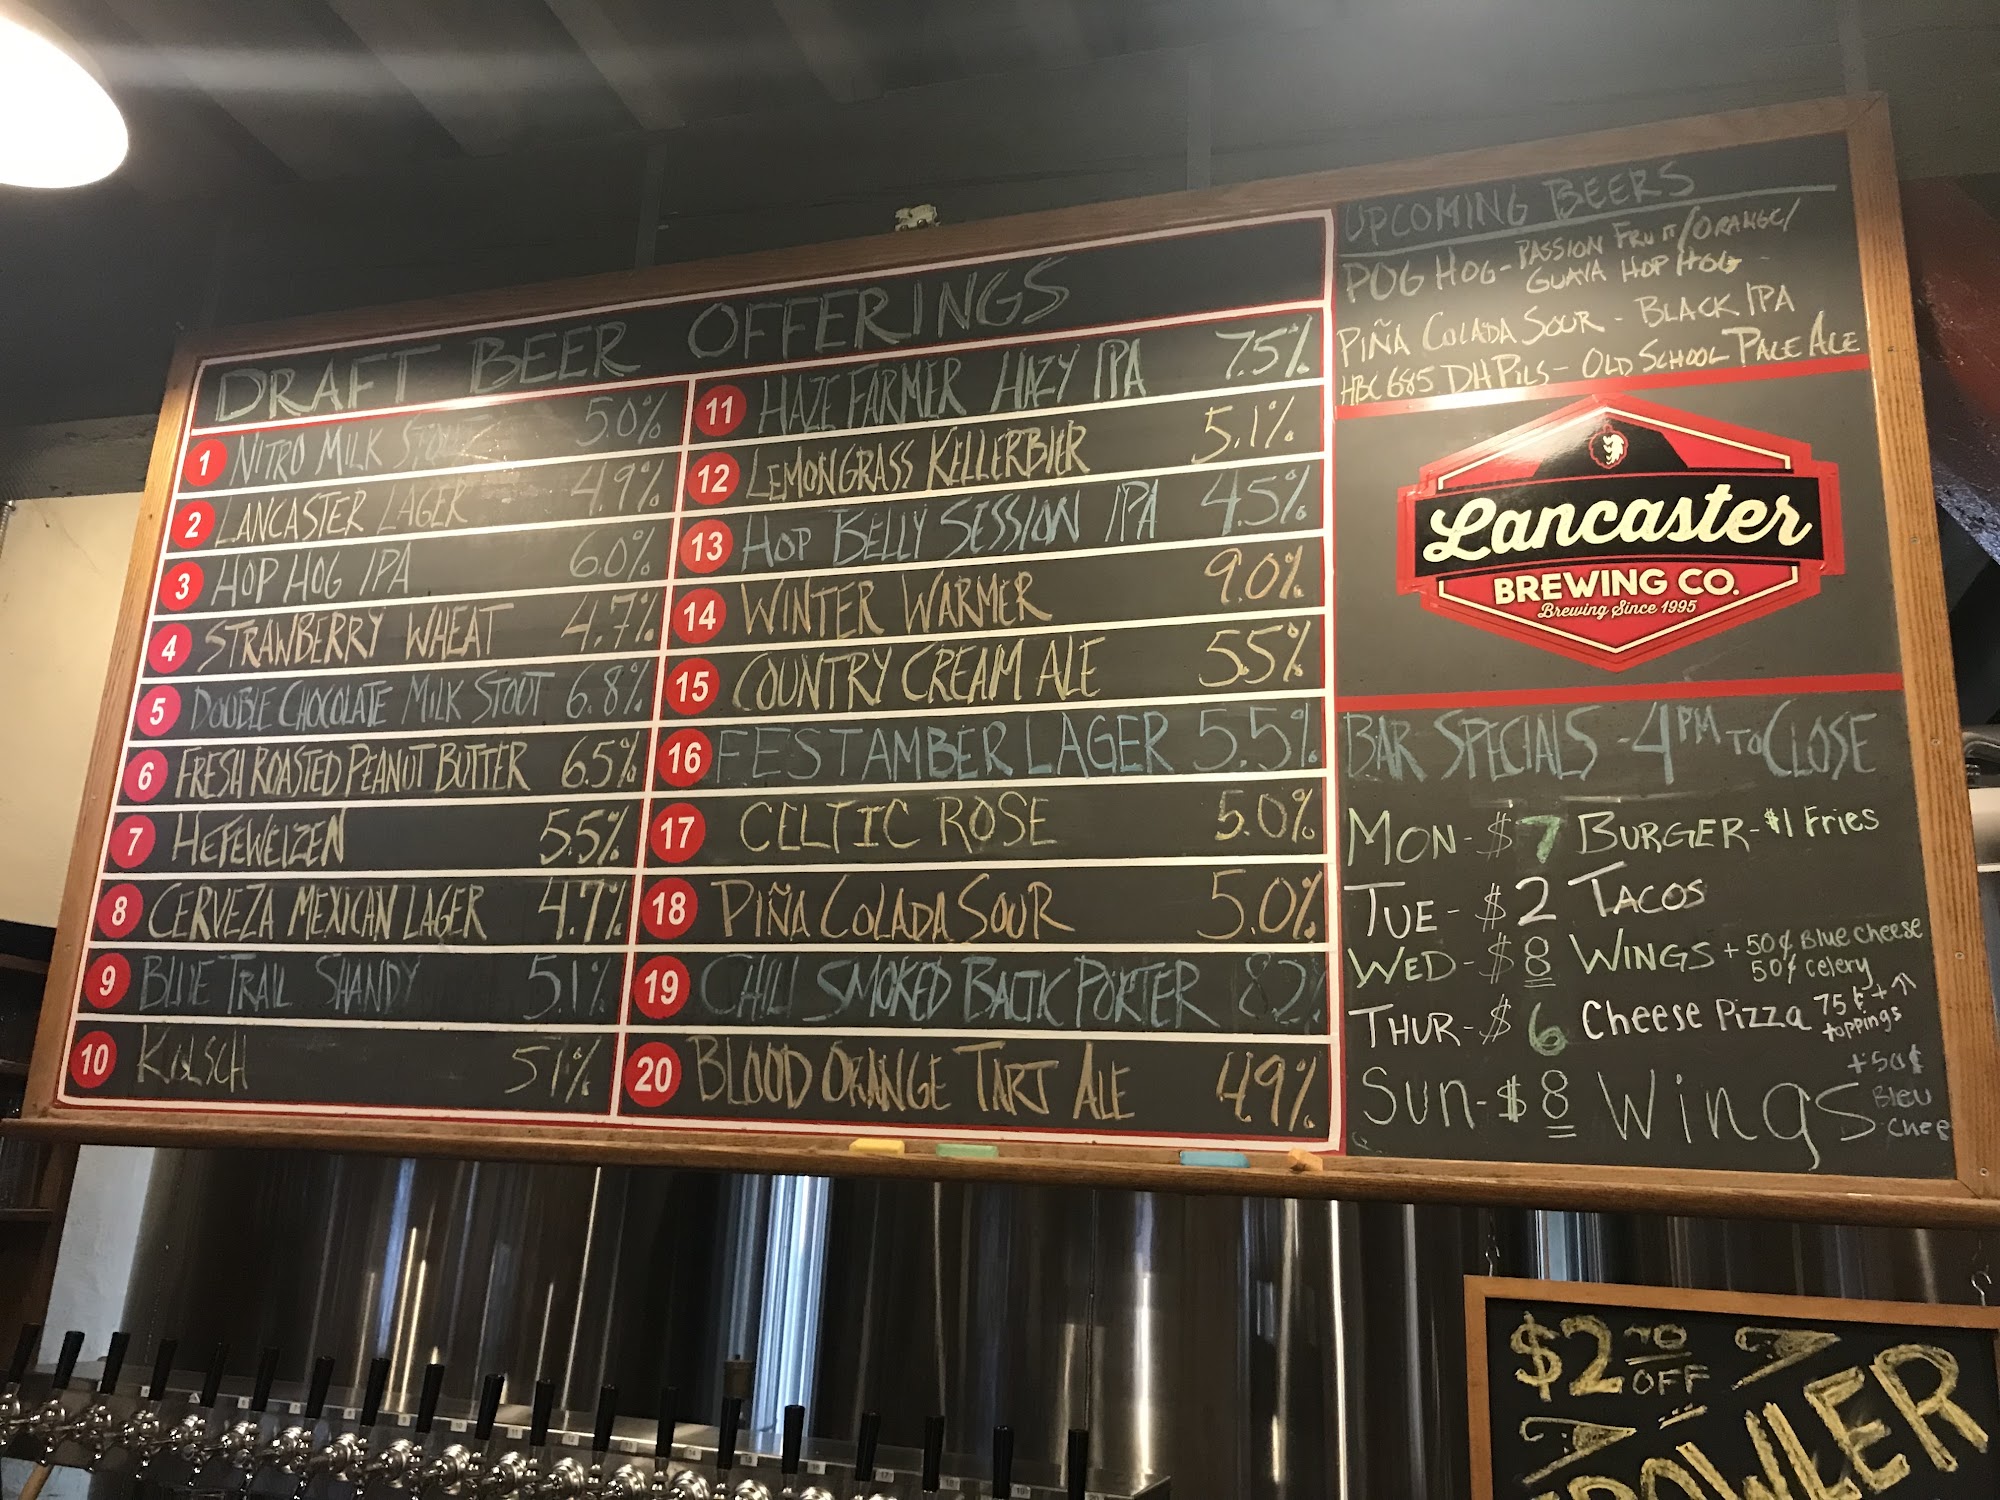 DRAFT BEER OFFERINGS
1 NITRO MILK STOUT 5.0%
2 LANCASTER LAGER 4.9%
3 HOP HOG IPA 6.0%
4 STRAWBERRY WHEAT 4.7%
5 DOUBLE CHOCOLATE MILK STOUT 6.8%
6 FRESH ROASTED PEANUT BUTTER 6.5%
7 HEFEWEIZEN 5.5%
8 CERVEZA MEXICAN LAGER 4.7%
9 BLUE TRAIL SHANDY 5.1%
10 KOLSCH 5.1%
11 HAZE FARMER HAZY IPA 7.5%
12 LEMONGRASS KELLERBIER 5.1%
13 HOP BELLY SESSION IPA 4.5%
14 WINTER WARMER 9.0%
15 COUNTRY CREAM ALE 5.5%
16 FEST AMBER LAGER 5.5%
17 CELTIC ROSE 5.0%
18 PIÑA COLADA SOUR 5.0%
19 CHILI SMOKED BALTIC PORTER 8.2%
20 BLOOD ORANGE TART ALE 4.9%
UPCOMING BEERS
POG HOG - PASSION FRUIT/ORANGE/
GUAVA HOP HOG -
PIÑA COLADA SOUR - BLACK IPA
HBC 685 DH PILS - OLD SCHOOL PALE ALE
Lancaster
BREWING CO.
Brewing Since 1995
BAR SPECIALS - 4PM TO CLOSE
MON - $7 BURGER - $1 Fries
TUE - $2 TACOS
WED - $8 WINGS + 50¢ Blue cheese
50¢ celery
THUR - $6 Cheese Pizza 75¢ +
toppings
SUN - $8 Wings +50¢
Bleu
Chee
$2 TO
OFF
GROWLER